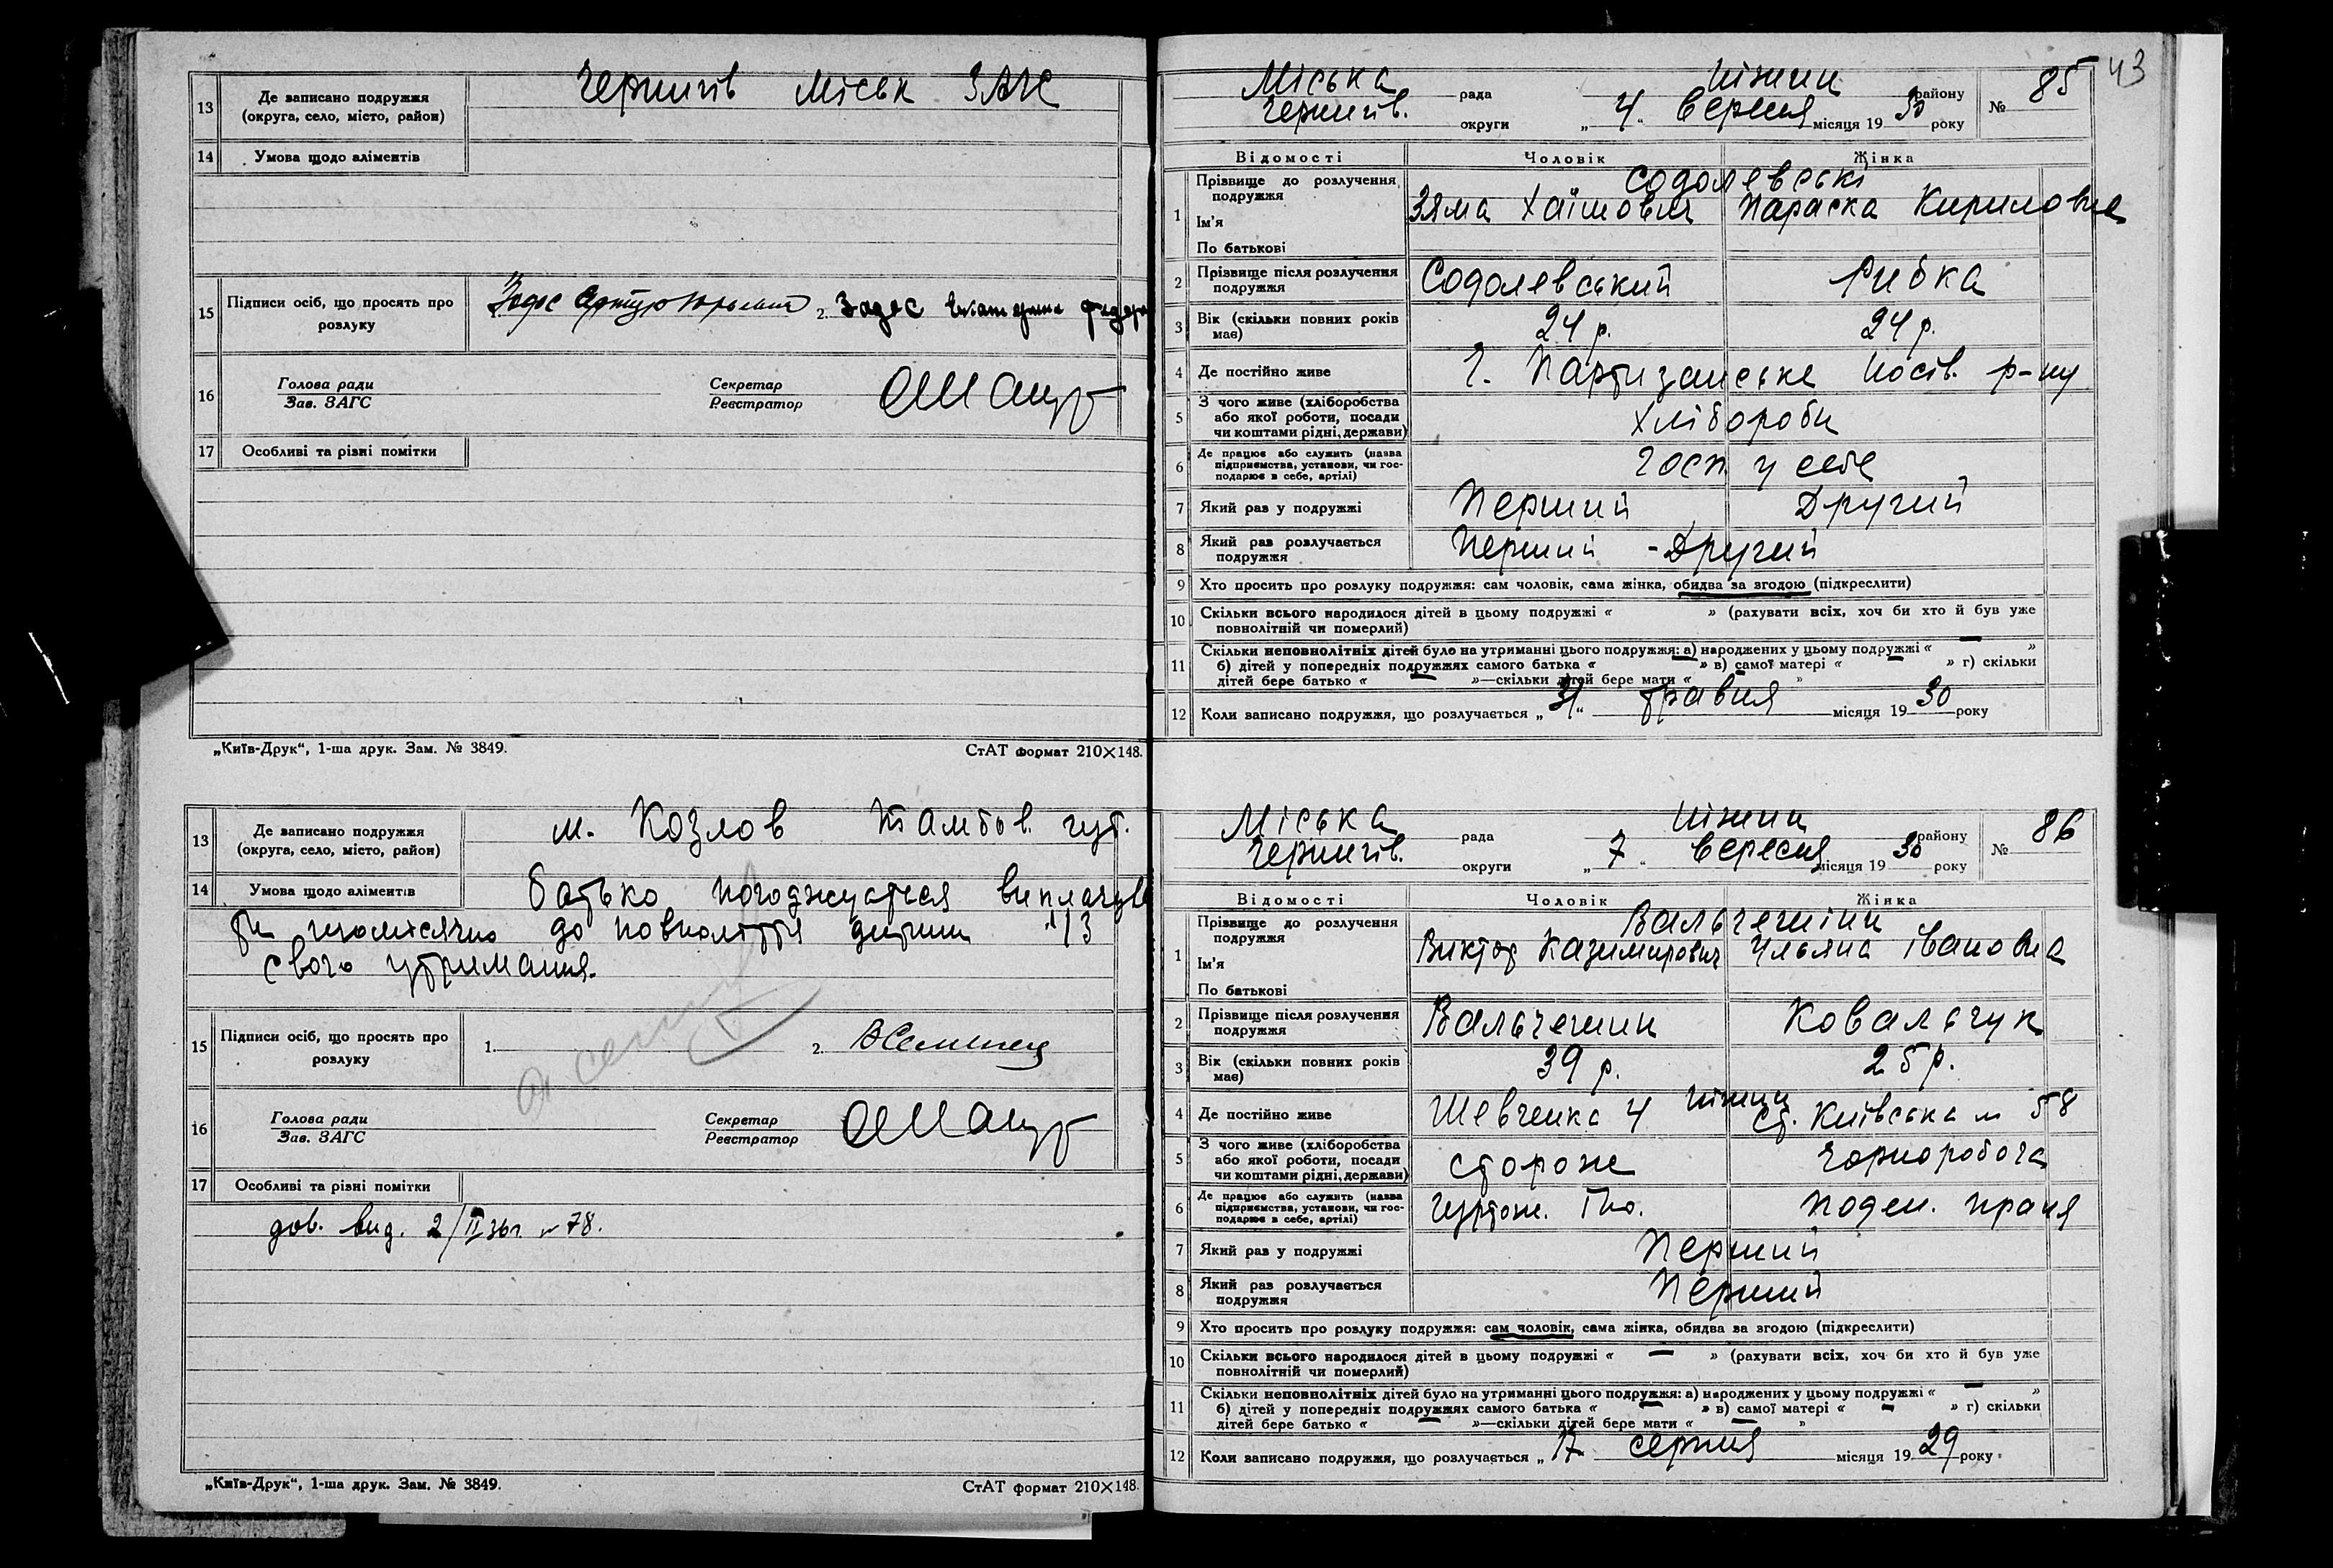 13 Де записано подружжя (округа, село, місто, район) Чернигів міськ ЗАГС
14 Умова щодо аліментів
15 Підписи осіб, що просять про розлуку 2. Задес Екатерина
16 Голова ради Зав. ЗАГС Секретар Реєстратор
17 Особливі та різні помітки
„Київ-Друк“, 1-ша друк. Зам. № 3849. СтАТ формат 210×148.
13 Де записано подружжя (округа, село, місто, район) м. Козлов Тамбов. губ.
14 Умова щодо аліментів батько погоджується виплачува
ти щомісячно до повноліття дитини 1/3
свого утримання.
15 Підписи осіб, що просять про розлуку 1. 2.
16 Голова ради Зав. ЗАГС Секретар Реєстратор
17 Особливі та різні помітки
дов. вид. 2/II 36г. № 78.
„Київ-Друк“, 1-ша друк. Зам. № 3849. СтАТ формат 210×148.
43
Міська рада Ніжин району № 85
Чернигів. округи „4“ вересня місяця 1930 року
Відомості Чоловік Жінка
1 Прізвище до розлучення подружжя Содолевські
Ім’я Зяма Хаїмович Параска Кириловна
По батькові
2 Прізвище після розлучення подружжя Содолевський Рибка
3 Вік (скільки повних років має) 24 р. 24 р.
4 Де постійно живе Партизанське Носів. р-ну
5 З чого живе (хліборобства або якої роботи, посади чи коштами рідні, держави) Хлібороби
6 Де працює або служить (назва підприємства, установи, чи господарює в себе, артілі) госп у себе
7 Який раз у подружжі Перший Другий
8 Який раз розлучається подружжя Перший - Другий
9 Хто просить про розлуку подружжя: сам чоловік, сама жінка, обидва за згодою (підкреслити)
10 Скільки всього народилося дітей в цьому подружжі « » (рахувати всіх, хоч би хто й був уже
повнолітній чи померлий)
11 Скільки неповнолітніх дітей було на утриманні цього подружжя: а) народжених у цьому подружжі « — »
б) дітей у попередніх подружжях самого батька « — » в) самої матері « — » г) скільки
дітей бере батько « — »—скільки дітей бере мати « »
12 Коли записано подружжя, що розлучається „31“ травня місяця 1930 року
Міська рада Ніжин району № 86
Чернигів. округи „7“ вересня місяця 1930 року
Відомості Чоловік Жінка
1 Прізвище до розлучення подружжя
Ім’я Виктор Казимирович Ульяна Івановна
По батькові
2 Прізвище після розлучення подружжя Ковальчук
3 Вік (скільки повних років має) 39 р. 25 р.
4 Де постійно живе Ніжин
Шевченка 4 Ст. Київська № 58
5 З чого живе (хліборобства або якої роботи, посади чи коштами рідні, держави) сторож Чорноробоча
6 Де працює або служить (назва підприємства, установи, чи господарює в себе, артілі) Поден. праця
7 Який раз у подружжі Перший
8 Який раз розлучається подружжя Перший
9 Хто просить про розлуку подружжя: сам чоловік, сама жінка, обидва за згодою (підкреслити)
10 Скільки всього народилося дітей в цьому подружжі « — » (рахувати всіх, хоч би хто й був уже
повнолітній чи померлий)
11 Скільки неповнолітніх дітей було на утриманні цього подружжя: а) народжених у цьому подружжі « — »
б) дітей у попередніх подружжях самого батька « — » в) самої матері « — » г) скільки
дітей бере батько « — »—скільки дітей бере мати « — »
12 Коли записано подружжя, що розлучається „17 серпня місяця 1929 року